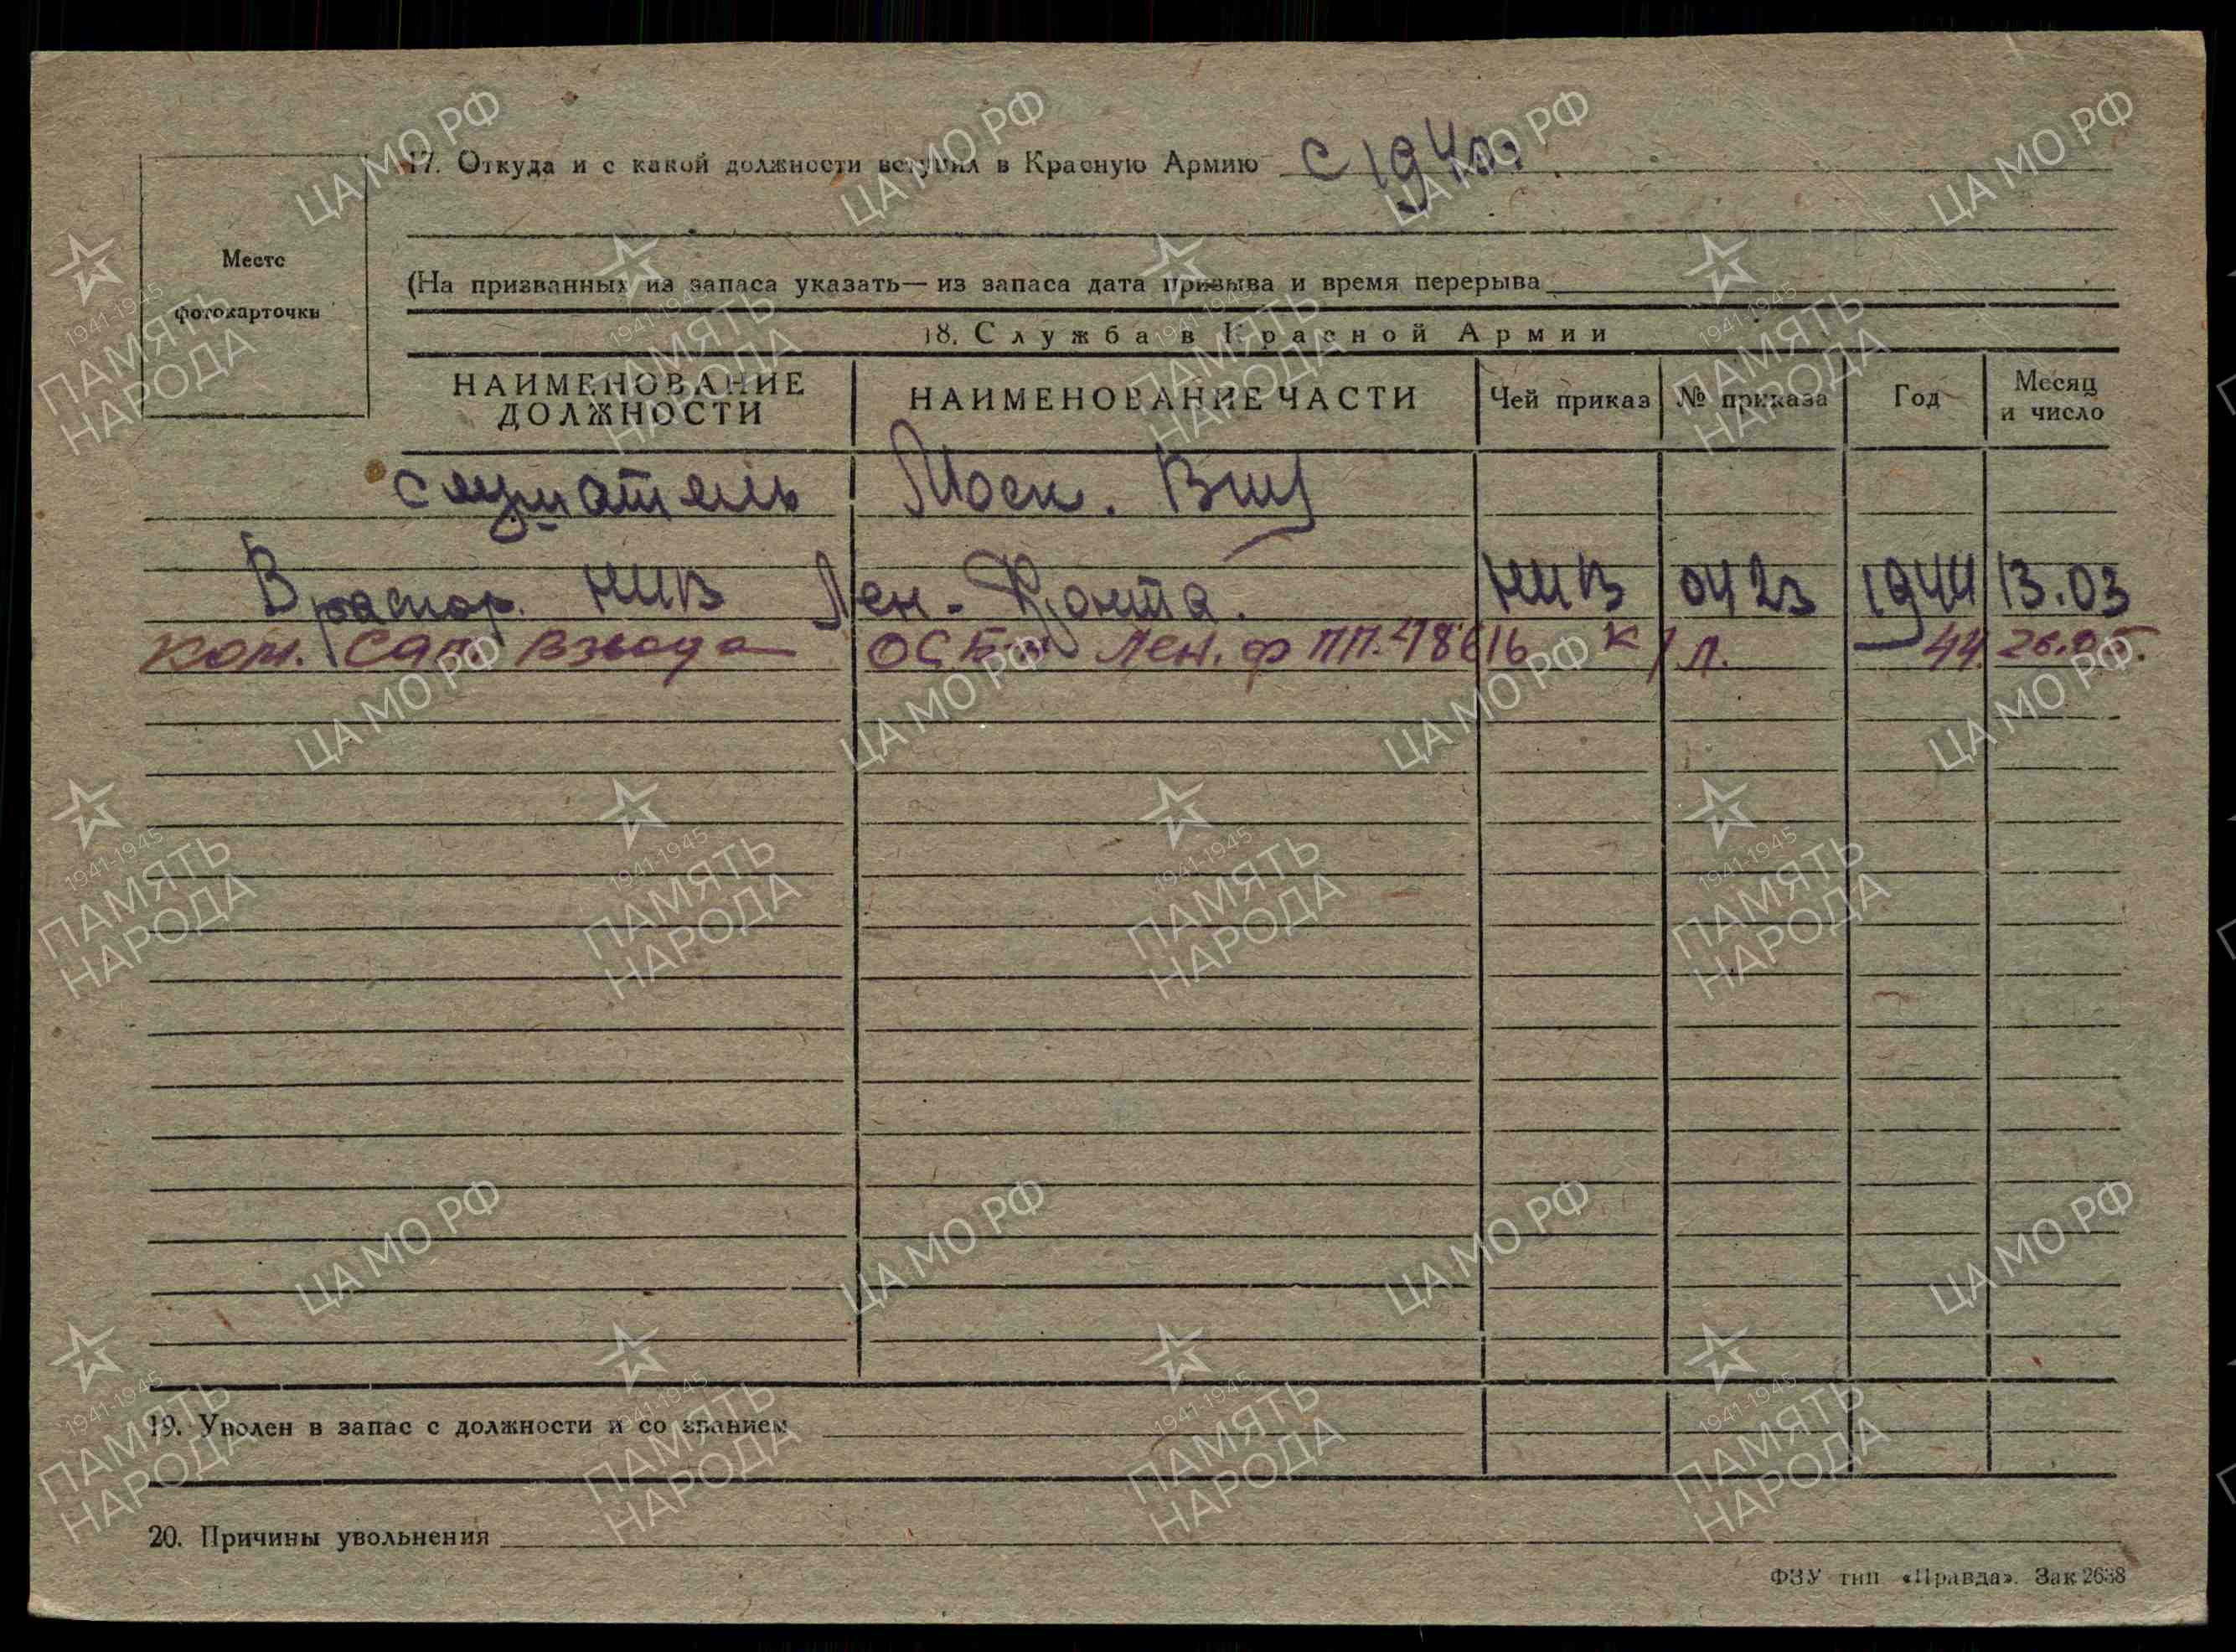 17. Откуда и с какой должности вступил в Красную Армию с 1940г.
Место
фотокарточки
(На призванных из запаса указать — из запаса дата призыва и время перерыва
18. Служба в Красной Армии
НАИМЕНОВАНИЕ ДОЛЖНОСТИ НАИМЕНОВАНИЕ ЧАСТИ Чей приказ № приказа Год Месяц и число
слушатель Моск. ВИУ
В распор. НИВ Лен. Фронта. НИВ 0423 1944 13.03
Ком. сап. взвода ОСБ-н Лен. ф ПП. 48616 к/л. — 44. 26.05.
19. Уволен в запас с должности и со званием
20. Причины увольнения
ФЗУ тип «Правда». Зак 2638
ЦА МО РФ
1941-1945
ПАМЯТЬ
НАРОДА